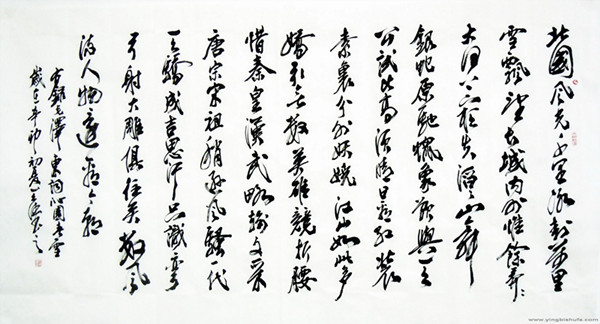 北國風光千里冰封萬里
雪飄望長城內外惟餘莽々
大河上下頓失滔々山舞
銀蛇原馳蠟象欲與天
公試比高須晴日看紅裝
素裹分外妖嬈江山如此多
嬌引無數英雄競折腰
惜秦皇漢武略輸文采
唐宗宋祖稍遜風騷一代
天驕成吉思汗只識彎
弓射大雕俱往矣數風
流人物還看今朝
右錄毛澤東詞沁園春雪
歲辛卯初夏
www.yingbishufa.com